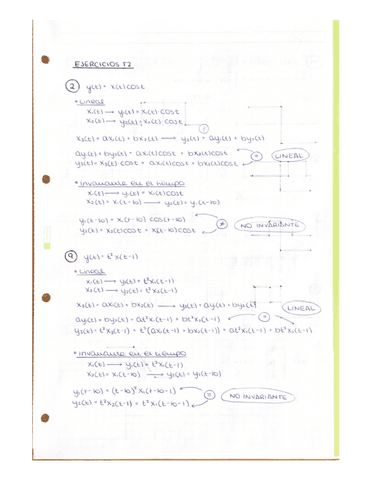 EJERCICIOS T2
② y(t) = x(t) cost
• Lineal
x₁(t) → y₁(t) = x₁(t)·cost
x₂(t) → y₂(t) = x₂(t)·cost
x₃(t) = ax₁(t) + bx₂(t) → y₃(t) = ay₁(t) + by₂(t)
ay₁(t) + by₂(t) = ax₁(t)cost + bx₂(t)cost
y₃(t) = x₃(t)·cost = ax₁(t)cost + bx₂(t)cost
= LINEAL
• Invariante en el tiempo
x₁(t) → y₁(t) = x₁(t)cost
x₂(t) = x₁(t-t0) → y₂(t) = y₁(t-t0)
y₁(t-t0) = x₁(t-t0) cos(t-t0)
y₂(t) = x₂(t)cost = x₁(t-t0)cost
≠ NO INVARIANTE
⑨ y(t) = t² x(t-1)
• Lineal
x₁(t) → y₁(t) = t²x₁(t-1)
x₂(t) → y₂(t) = t²x₂(t-1)
x₃(t) = ax₁(t) + bx₂(t) → y₃(t) = ay₁(t) + by₂(t)
LINEAL
ay₁(t) + by₂(t) = at²x₁(t-1) + bt²x₂(t-1) =
y₃(t) = t²x₃(t-1) = t²(ax₁(t-1) + bx₂(t-1)) = at²x₁(t-1) + bt²x₂(t-1)
• Invariante en el tiempo
x₁(t) → y₁(t) = t²x₁(t-1)
x₂(t) = x₁(t-t0) → y₂(t) = y₁(t-t0)
y₁(t-t0) = (t-t0)² x₁(t-t0-1)
y₂(t) = t²x₂(t-1) = t²x₁(t-t0-1)
NO INVARIANTE